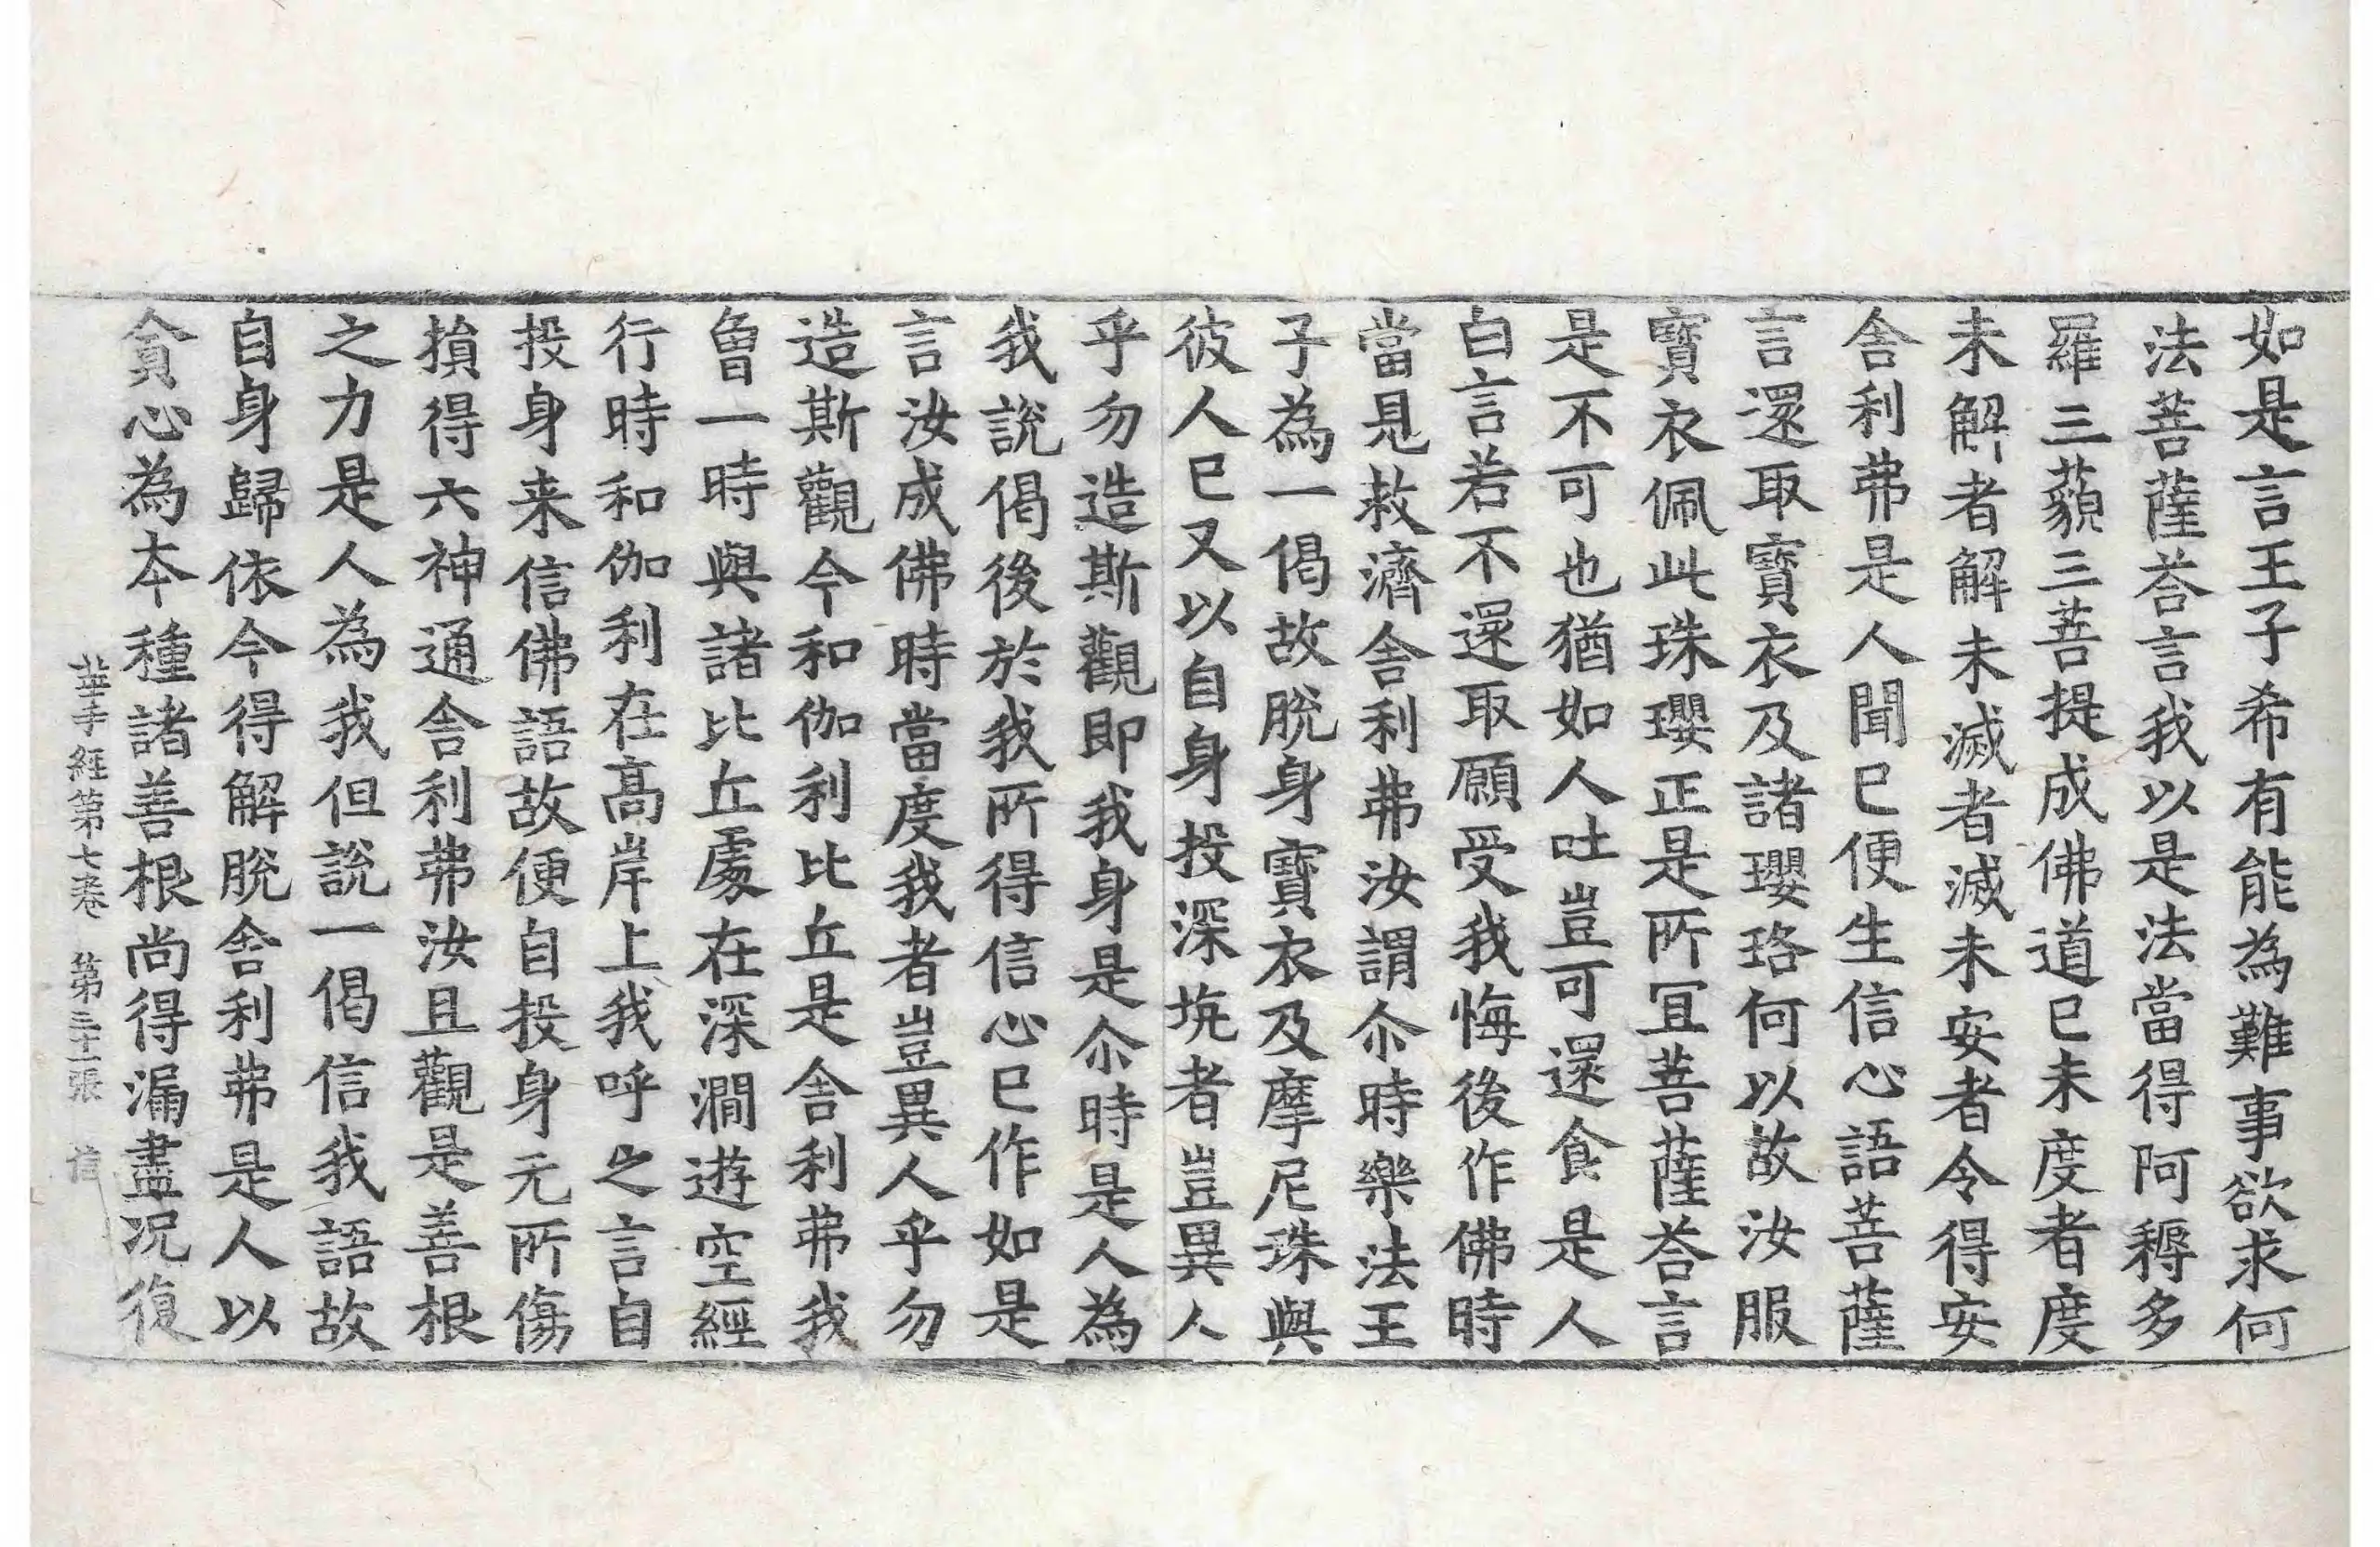 如是言王子希有能為難事欲求何
法菩薩荅言我以是法當得阿耨多
羅三藐三菩提成佛道已未度者度
未解者解未滅者滅未安者令得安
舎利弗是人聞已便生信心語菩薩
言還取寳衣及諸瓔珞何以故汝服
寳衣佩此珠瓔正是所冝菩薩荅言
是不可也猶如人吐豈可還食是人
白言若不還取願受我悔後作佛時
當見救濟舎利弗汝謂尒時樂法王
子為一偈故脫身寳衣及摩尼珠與
彼人已又以自身投深坑者豈異人
乎勿造斯觀即我身是尒時是人為
我說偈後於我所得信心已作如是
言汝成佛時當度我者豈異人乎勿
造斯觀今和伽利比丘是舎利弗我
曾一時與諸比丘處在深澗遊空經
行時和伽利在高岸上我呼之言自
投身来信佛語故便自投身元所傷
損得六神通舎利弗汝且觀是善根
之力是人為我但說一偈信我語故
自身歸依今得解脫舎利弗是人以
貪心為本種諸善根尚得漏盡况復
華手經第七卷 第三十一張 信